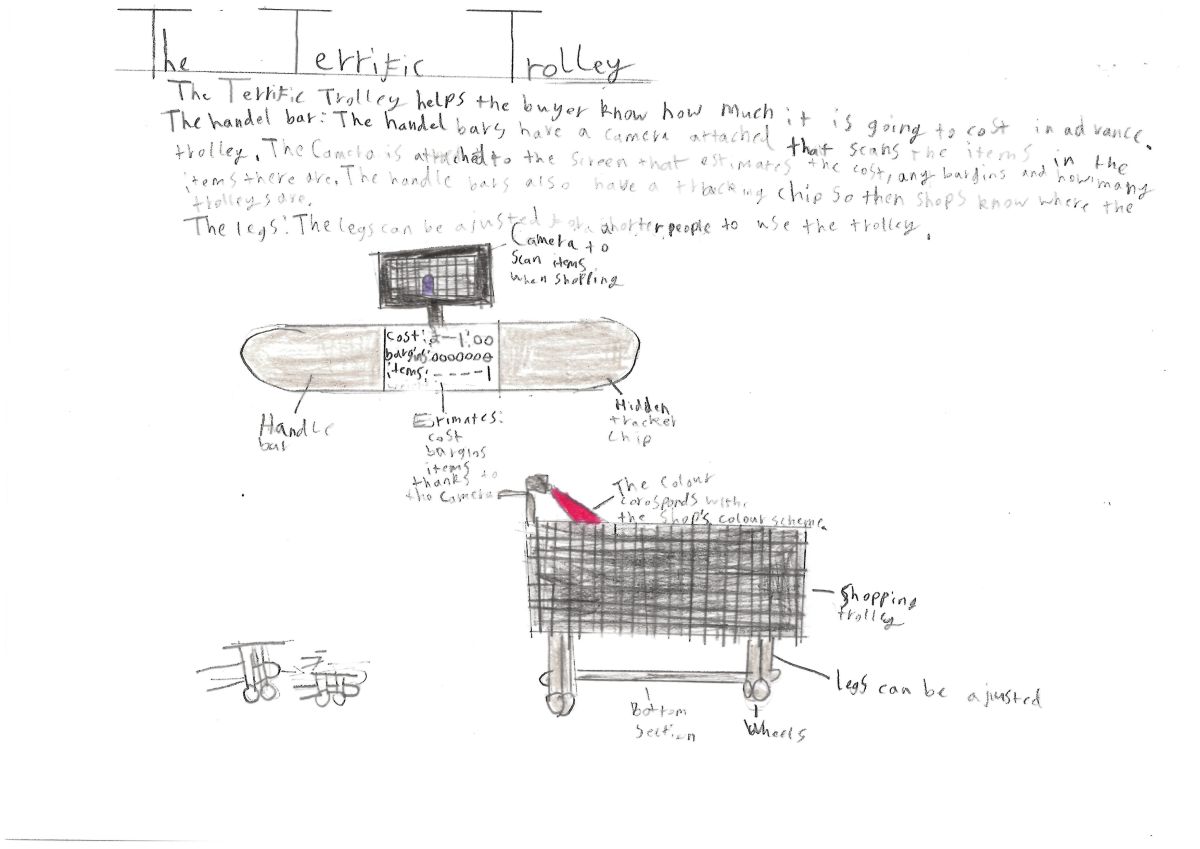 The Terrific Trolley
The Terrific Trolley helps the buyer know how much it is going to cost in advance.
The handel bar: The handel bars have a camera attached that scans the items in the
trolley. The Camera is attached to the screen that estimates the cost, any bargins and how many
items there are. The handle bars also have a tracking chip so then shops know where the
trolleys are.
The legs: The legs can be ajusted for shorter people to use the trolley.
Camera to
scan items
when shopping
cost: £-1.00
bargins: 0000000
items: ----1
Handle
bar
Estimates:
cost
bargins
items
thanks to
the camera
Hidden
tracker
chip
The colour
corosponds with
the shop's colour scheme.
Shopping
trolley
legs can be ajusted
Bottom
section
Wheels